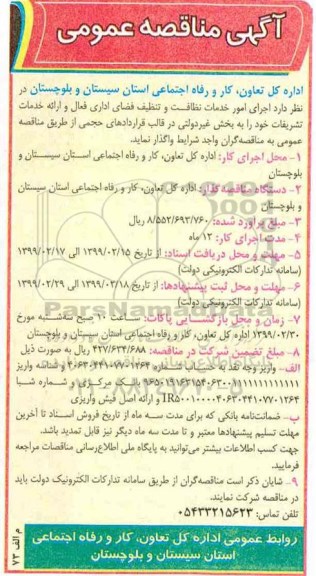 آگهی مناقصه عمومی
اداره کل تعاون، کار و رفاه اجتماعی استان سیستان و بلوچستان در
نظر دارد اجرای امور خدمات نظافت و تنظیف فضای اداری فعال و ارائه خدمات
تشریفات خود را به بخش غیردولتی در قالب قراردادهای حجمی از طریق مناقصه
عمومی به مناقصه‌گران واجد شرایط واگذار نماید.
۱- محل اجرای کار: اداره کل تعاون، کار و رفاه اجتماعی استان سیستان و
بلوچستان
۲- دستگاه مناقصه گذار: اداره کل تعاون، کار و رفاه اجتماعی استان سیستان
و بلوچستان
۳- مبلغ برآورد شده: ۸/۵۵۲/۶۹۳/۷۶۰ ریال
۴- مدت اجرای کار: ۱۲ ماه
۵- مهلت و محل دریافت اسناد: از تاریخ ۱۳۹۹/۰۲/۱۵ الی ۱۳۹۹/۰۲/۱۷
(سامانه تدارکات الکترونیکی دولت)
۶- مهلت و محل ثبت پیشنهادها: از تاریخ ۱۳۹۹/۰۲/۱۸ الی ۱۳۹۹/۰۲/۲۹
(سامانه تدارکات الکترونیکی دولت)
۷- زمان و محل بازگشایی پاکات: ساعت ۱۰ صبح سه‌شنبه مورخ
۱۳۹۹/۰۲/۳۰ اداره کل تعاون، کار و رفاه اجتماعی استان سیستان و بلوچستان
۸- مبلغ تضمین شرکت در مناقصه: ۴۲۷/۶۳۴/۶۸۸ ریال به صورت ذیل
الف- واریز وجه نقد به حساب شماره و شناسه واریز
بانک مرکزی و شماره شبا
و ارائه اصل فیش واریزی
ب- ضمانتنامه بانکی که برای مدت سه ماه از تاریخ فروش اسناد تا آخرین
مهلت تسلیم پیشنهادها معتبر و تا مدت سه ماه دیگر نیز قابل تمدید باشد.
جهت کسب اطلاعات بیشتر می‌توانید به پایگاه ملی اطلاع‌رسانی مناقصات مراجعه
فرمایید.
۹- شایان ذکر است مناقصه‌گران از طریق سامانه تدارکات الکترونیک دولت باید
در مناقصه شرکت نمایند.
تلفن تماس: ۰۵۴۳۳۲۱۵۶۲۳
روابط عمومی اداره کل تعاون، کار و رفاه اجتماعی
استان سیستان و بلوچستان
م الف ۷۳